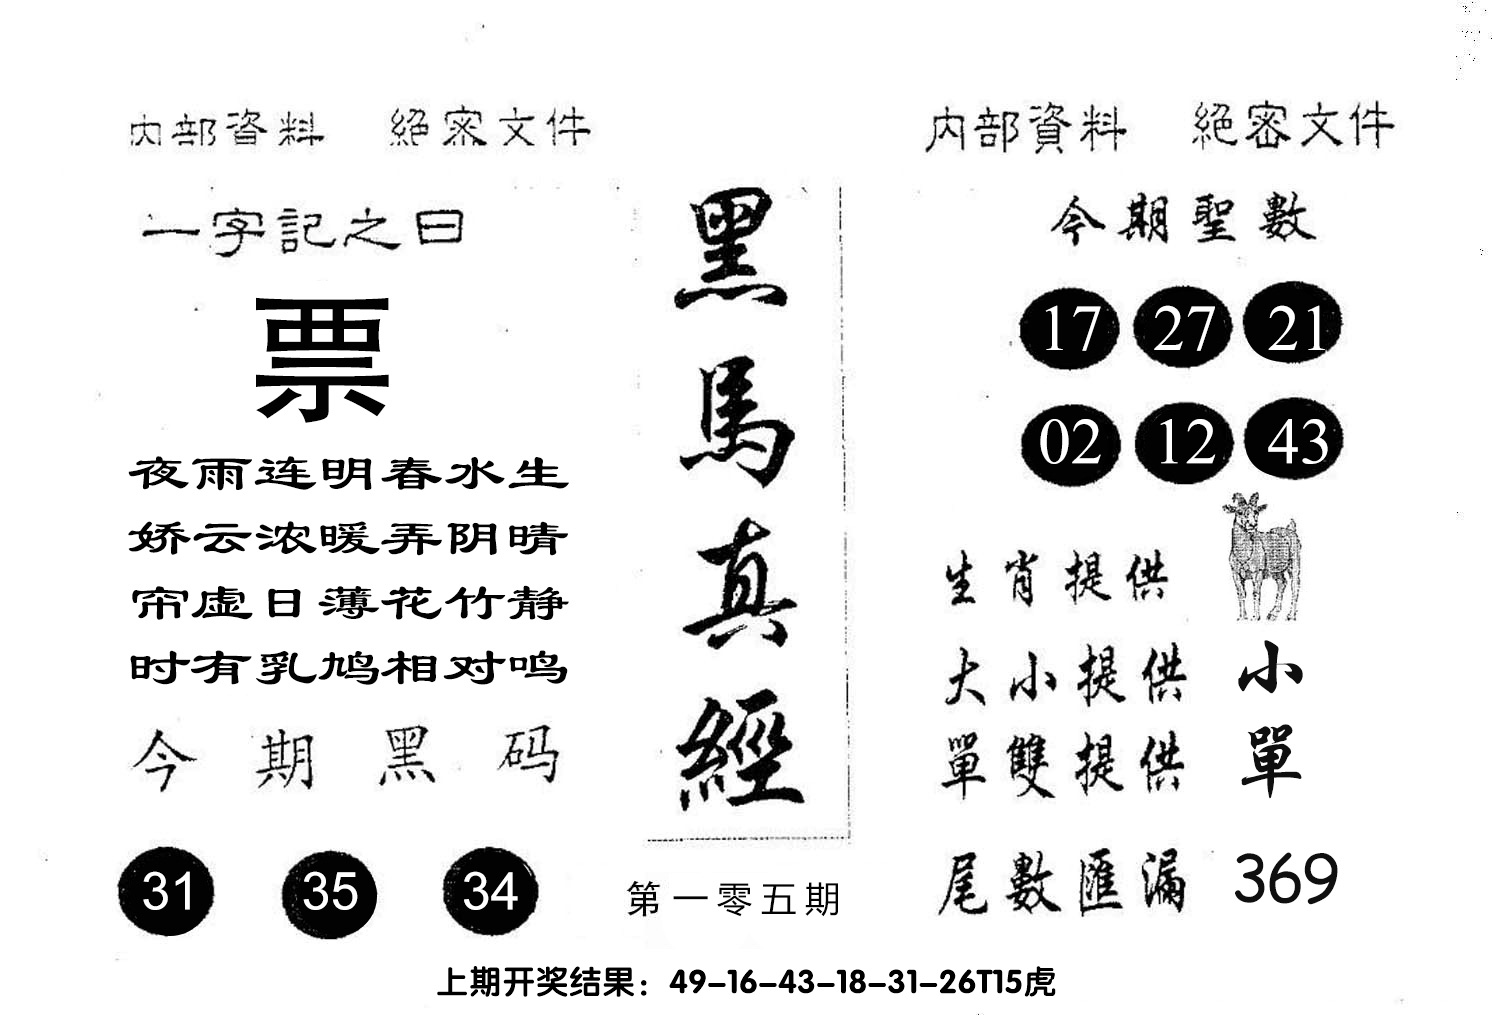 内部資料 絕密文件
一字記之曰
票
夜雨连明春水生
娇云浓暖弄阴晴
帘虚日薄花竹静
时有乳鸠相对鸣
今期黑码
31 35 34
黑馬真經
第一零五期
内部資料 絕密文件
今期聖數
17 27 21
02 12 43
生肖提供
大小提供 小
單雙提供 單
尾數匯漏 369
上期开奖结果：49-16-43-18-31-26T15虎